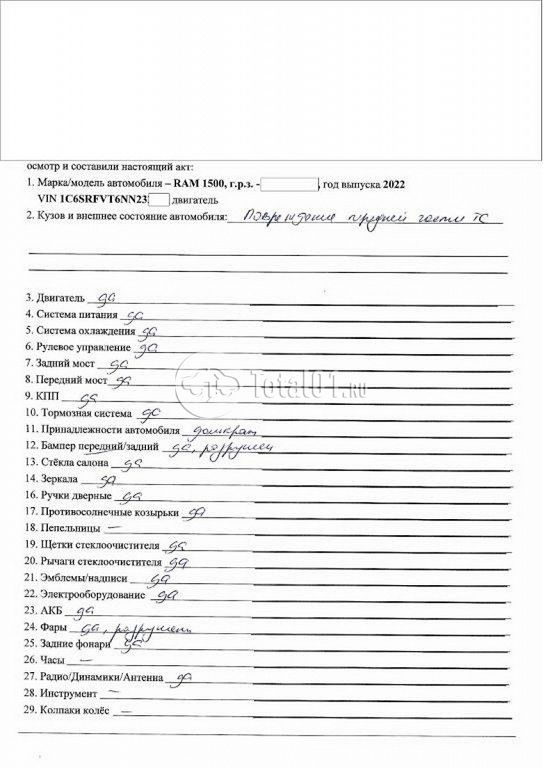 осмотр и составили настоящий акт:
1. Марка/модель автомобиля – RAM 1500, г.р.з. - , год выпуска 2022
VIN 1C6SRFVT6NN23 двигатель
2. Кузов и внешнее состояние автомобиля: Повреждение передней части ТС
3. Двигатель да
4. Система питания да
5. Система охлаждения да
6. Рулевое управление да
7. Задний мост да
8. Передний мост да
9. КПП да
Total01.RU
10. Тормозная система да
11. Принадлежности автомобиля домкрат
12. Бампер передний/задний да, разрушен
13. Стёкла салона да
14. Зеркала да
16. Ручки дверные да
17. Противосолнечные козырьки да
18. Пепельницы —
19. Щетки стеклоочистителя да
20. Рычаги стеклоочистителя да
21. Эмблемы/надписи да
22. Электрооборудование да
23. АКБ да
24. Фары да, разрушены
25. Задние фонари да
26. Часы —
27. Радио/Динамики/Антенна да
28. Инструмент —
29. Колпаки колёс —